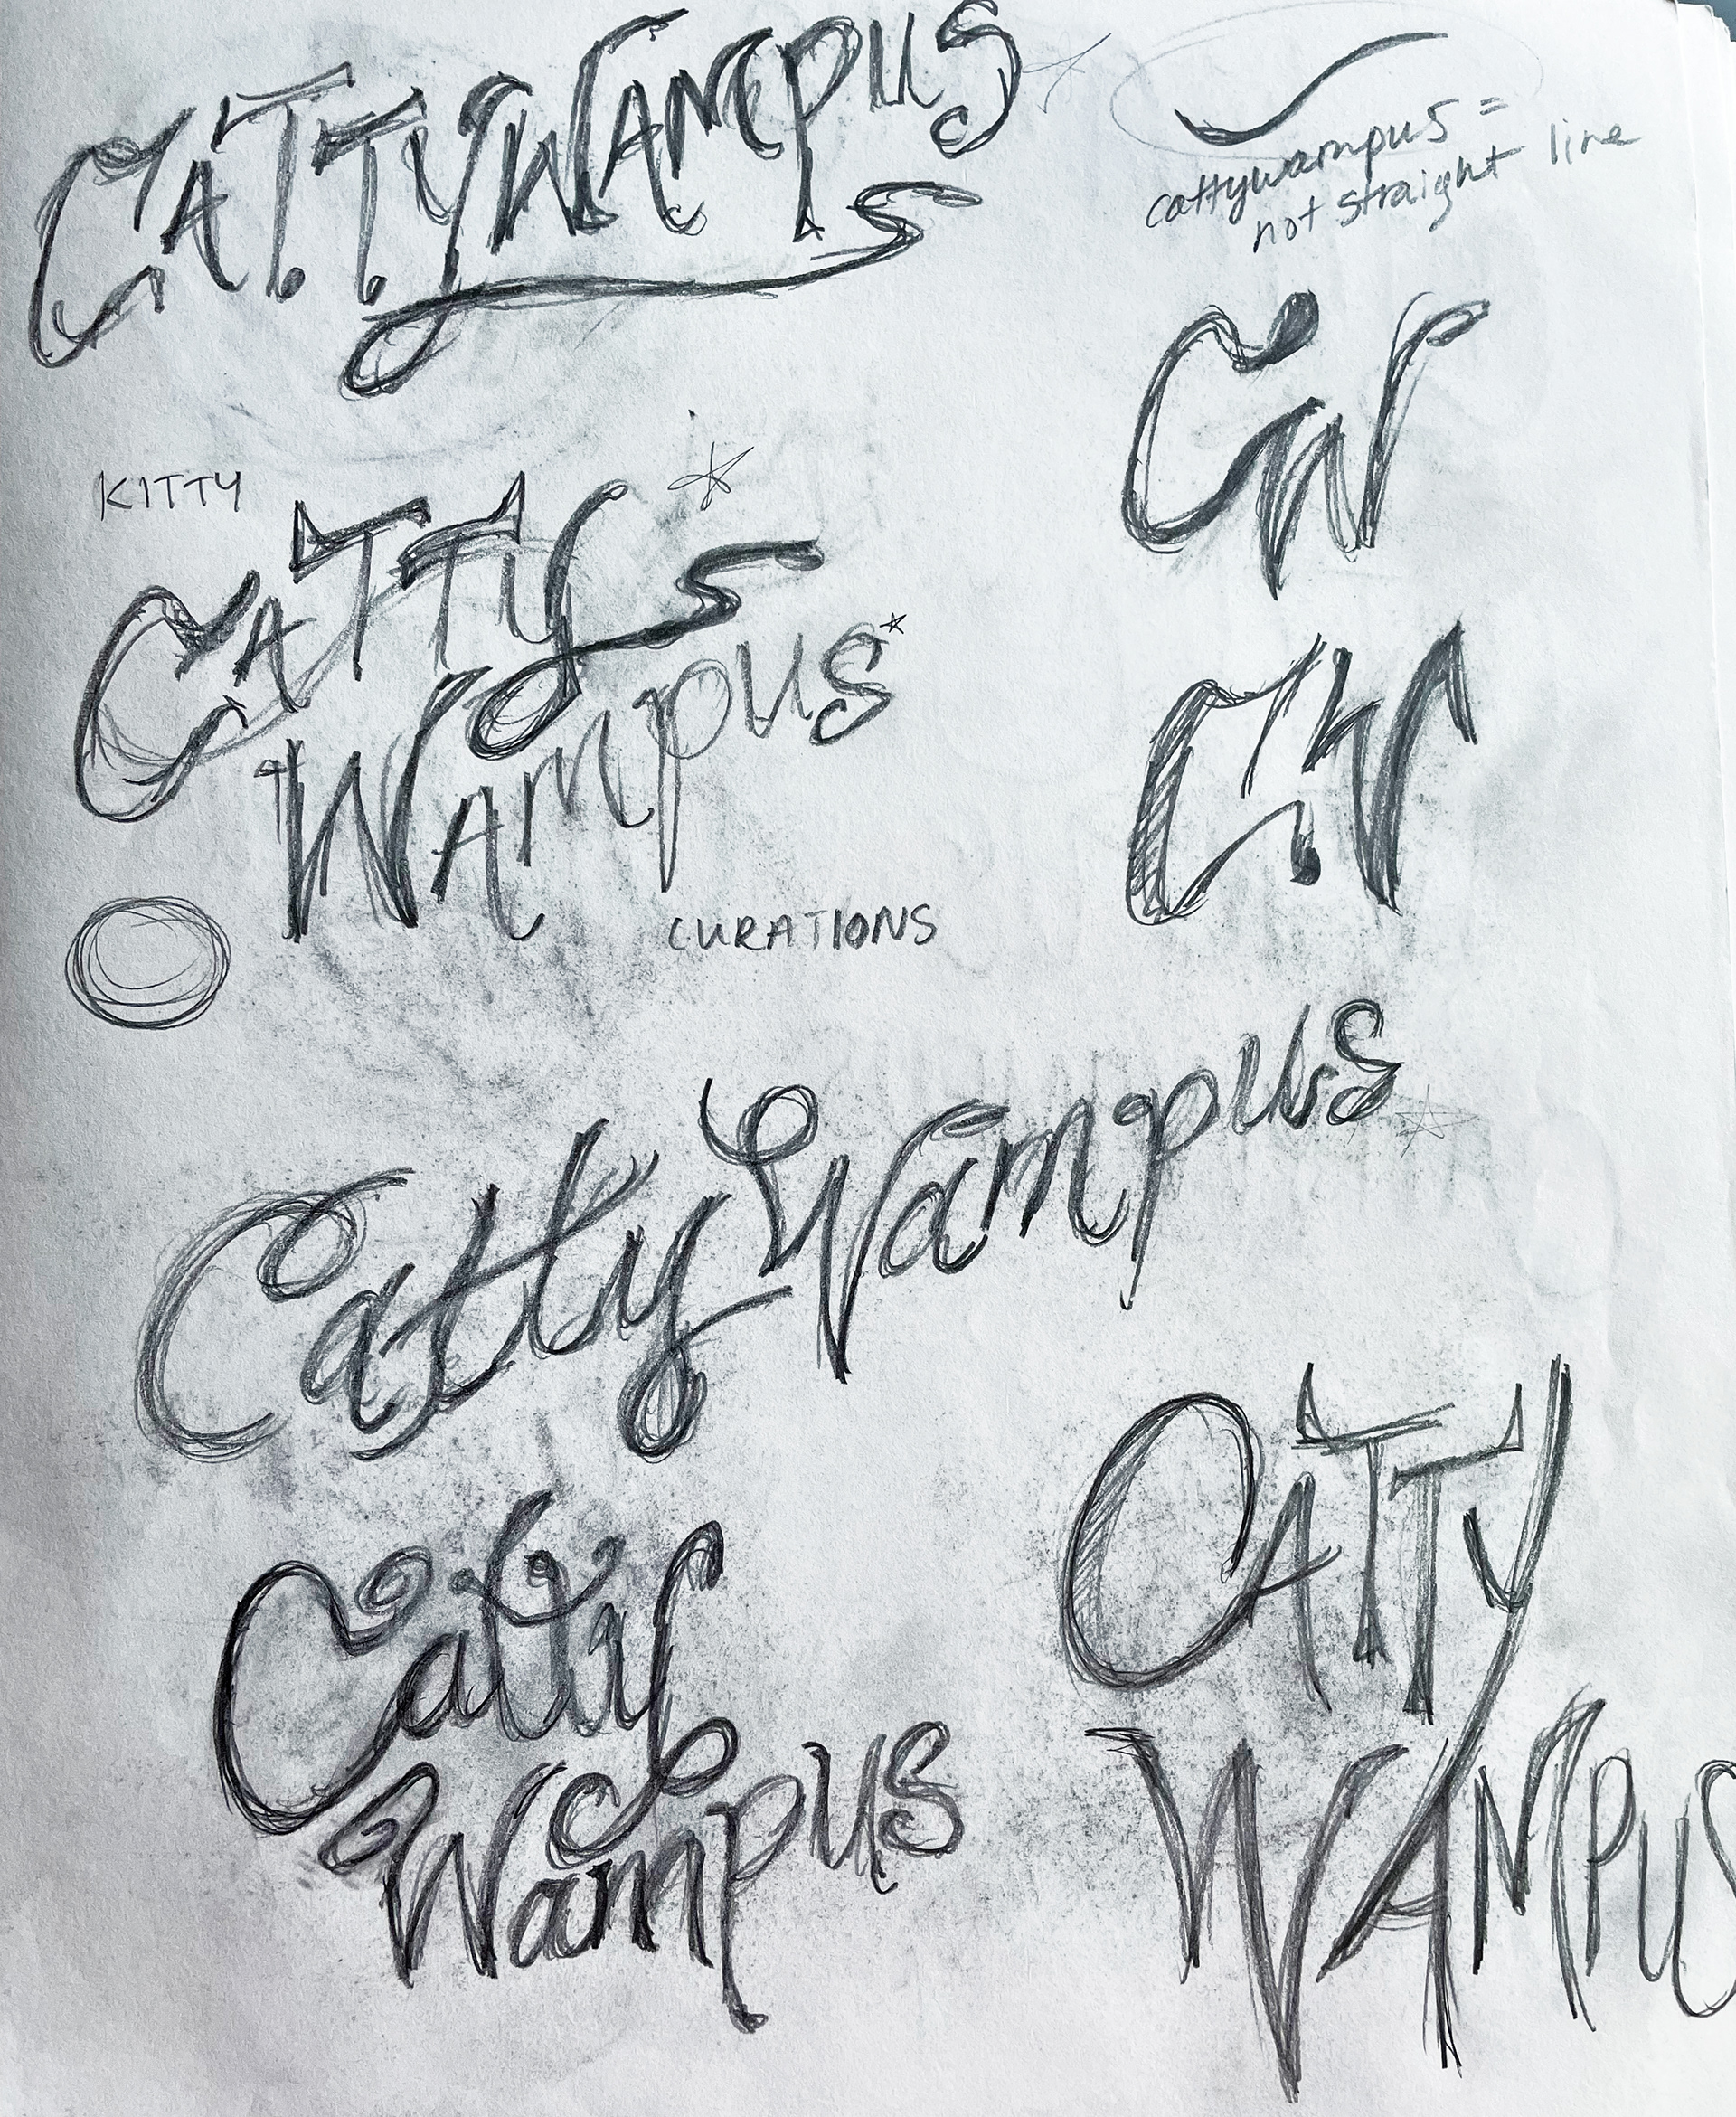 CATTYWAMPUS
cattywampus =
not straight line
CW
KITTY
CATTY
WAmpus
CURATIONS
CW
CattyWampus
Catty
Wampus
CATTY
WAMPUS